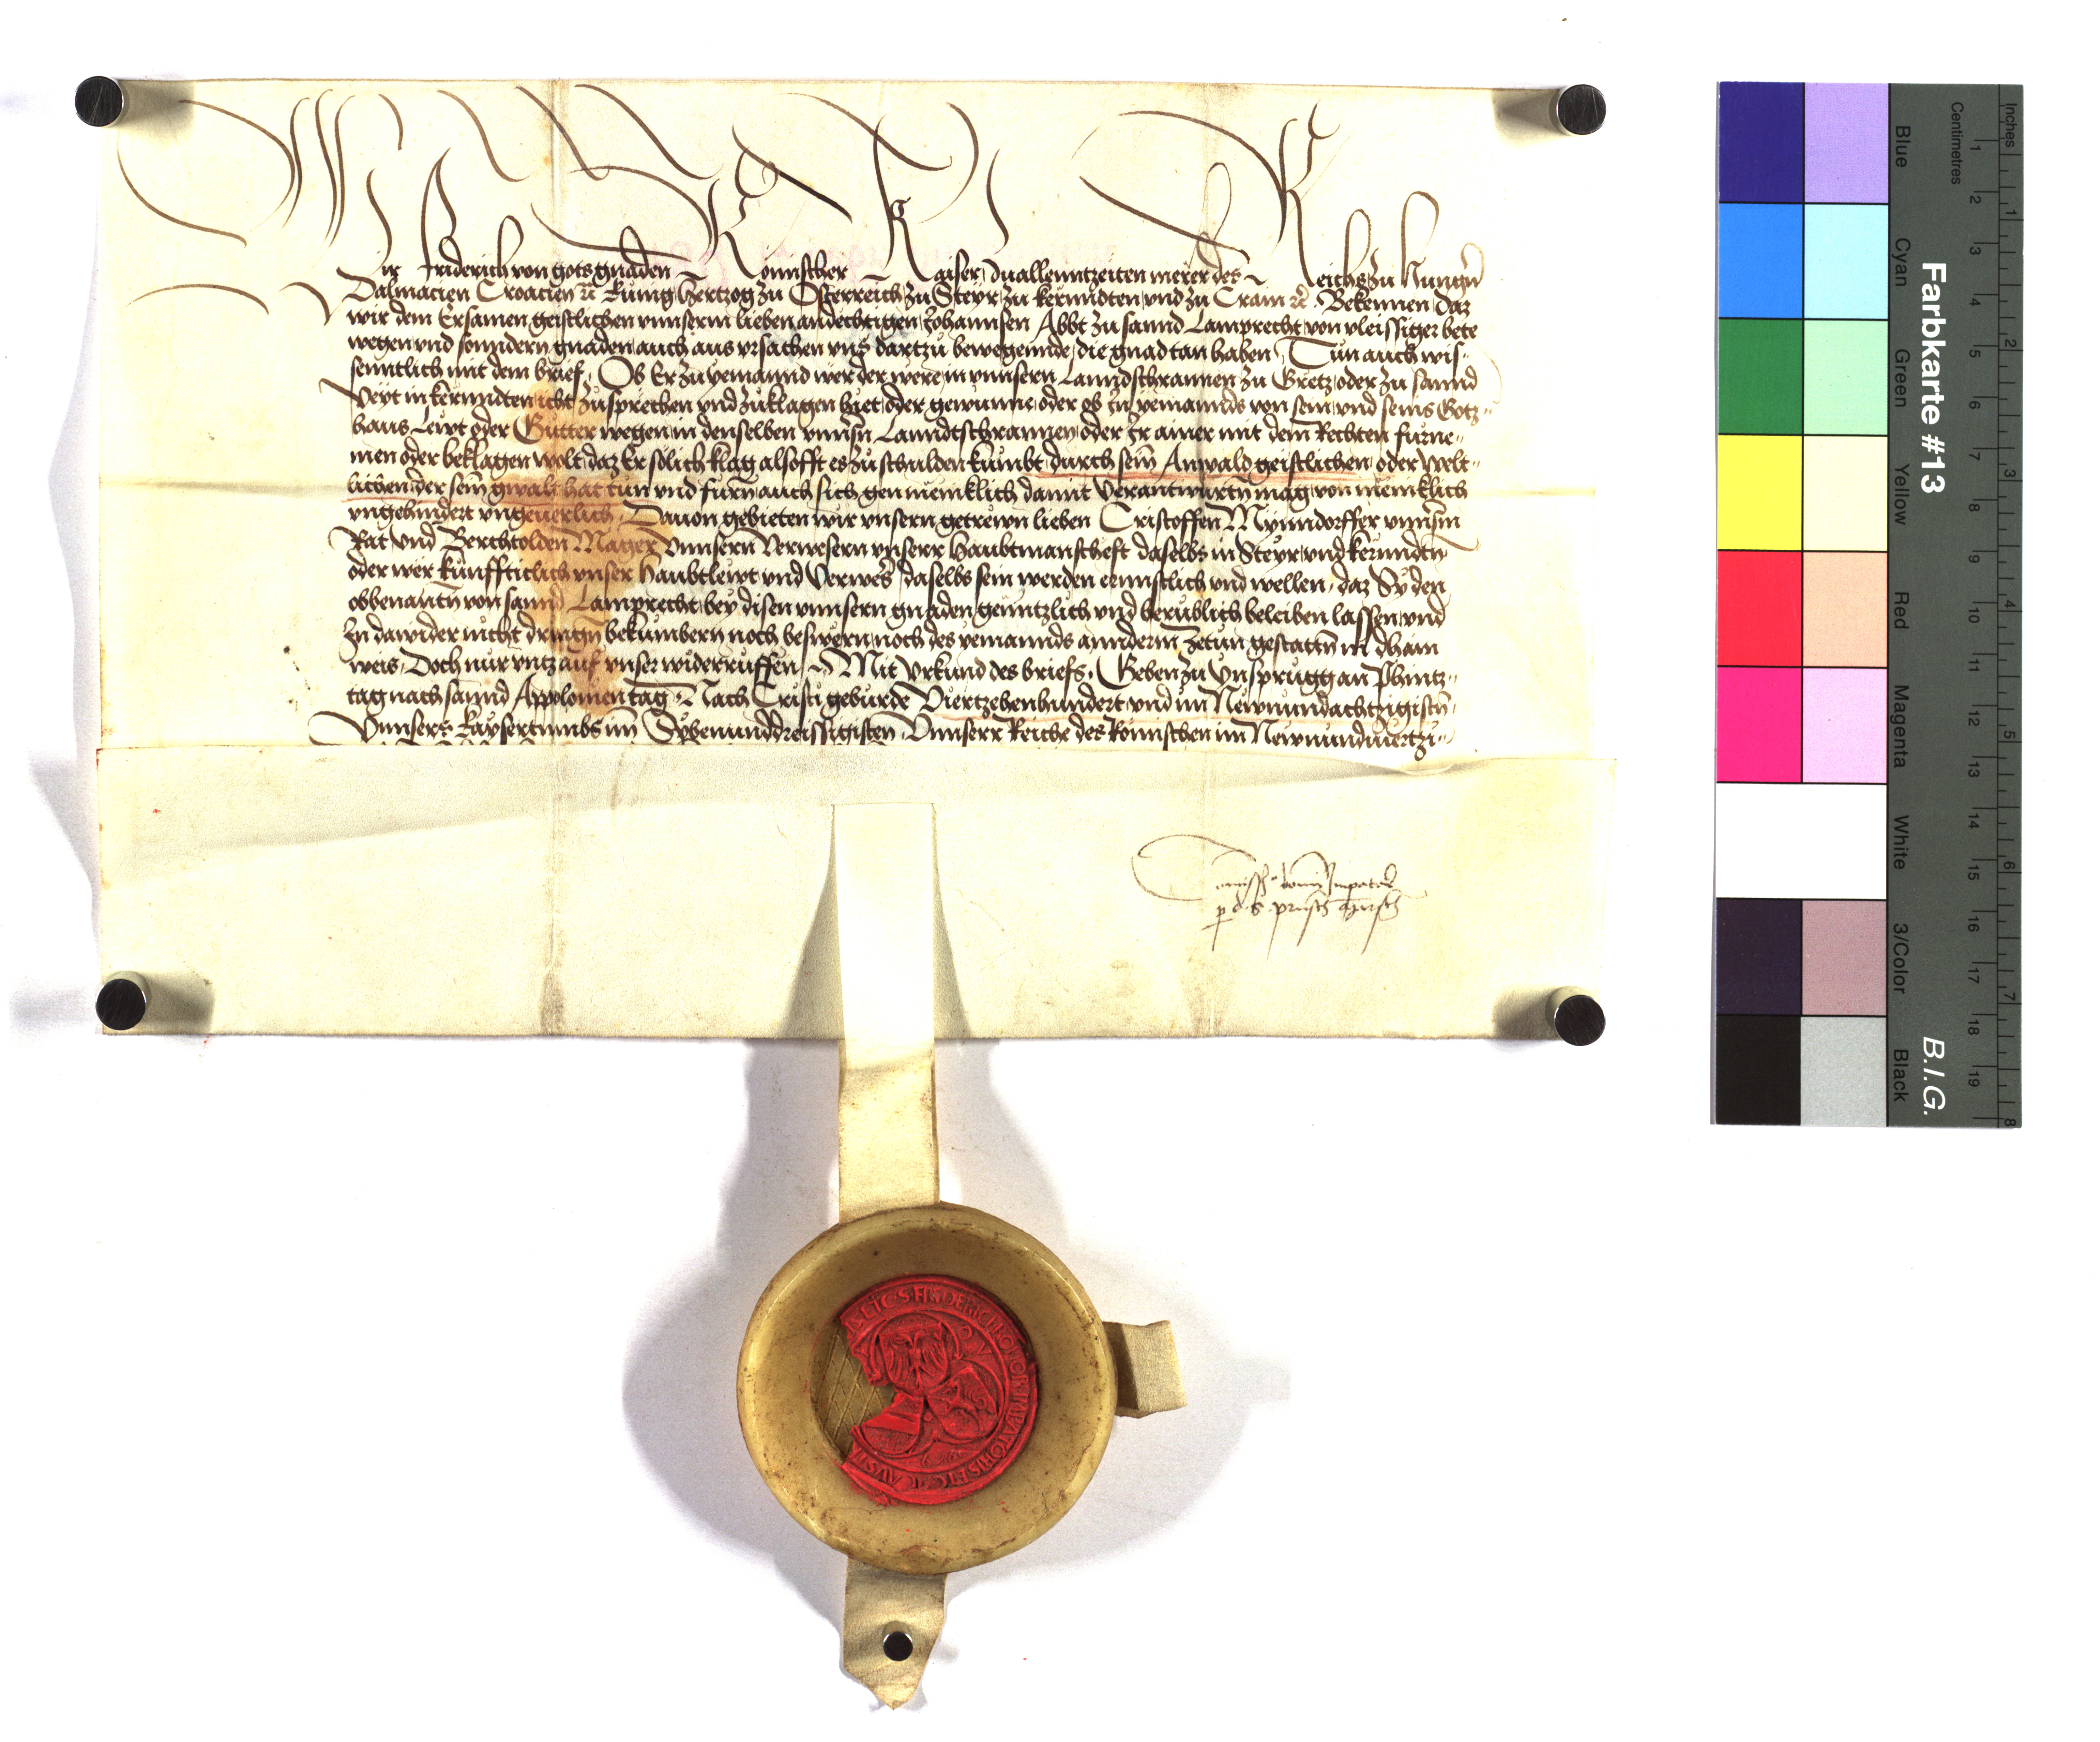 Wir Friderich von gots gnaden Romischer Kaiser zuallenntzeiten merer des Reichs zu Hungern
Dalmacien Croacien etc Kunig Hertzog zu Osterreich zu Steyr zu Kernndten und zu Crain etc Bekennen daz
wir dem Ersamen geistlichen unnserm lieben andechtigen Johannsen Abbt zu sannd Lamprecht von vleissiger bete
wegen und sonndern gnaden auch aus ursachen uns dartzu bewegennde die gnad tan haben Tun auch wis-
senntlich mit dem brief Ob Er zu yemannd wer der were in unnsern Lanndschrannen zu Gretz oder zu sannd
Veyt in kernndten icht zusprechen und zuklagen hiet oder gewunne oder ob In yemannds von sein und seins Gotz-
haus Lewt oder Gutter wegen in denselben unnsrn Lanndtschrannen oder Ir ainer mit dem Rechten furne-
men oder beklagen wolt daz Er solich klag alsofft es zuschulden kumbt durch sein Anwald geistlichen oder Welt-
lichen der sein gwalt hat tun und furn auch sich gen menniklich damit Verantwurtn mag von menniklich
ungehindert ungeuerlich Dauon gebieten wir unsern getrewn lieben Cristoffen Mynndorffer unnserm
Rat und Berchtolden Mager unnsern Verwesern unserr Haubtmanscheft daselbs in Steyr und kernndtn
oder wer kunffticlich unser Haubtlewt und Verweser daselbs sein werden ernnstlich und wellen daz Sy den
obbenantn von sannd Lamprecht bey disen unnsern gnaden genntzlich und berublich beleiben lassen und
In dawider nicht dringn bekumbern noch beswern noch des yemannds annderm zetun gestattn in dhain
weis Doch nur untz auf unser widerruffen Mit Urkund des briefs Geben zu Ynsprugg an Phintz-
tag nach sannd Appolonien tag Nach Cristi geburde Viertzehenhundert und im Newnundachtzigistn
Unnsers Kaysertumbs im Sybenunddreissigisten Unnserr Reiche des Romischen im Newnundviertzi-
Comissio domini Imperatoris
p d s
ETC S FRIDERICI ROMANOR IMPATORIS ETC AVSTR
Farbkarte #13
B.I.G.
Inches
Centimetres
1 2 3 4 5 6 7 8
1 2 3 4 5 6 7 8 9 10 11 12 13 14 15 16 17 18 19
Blue
Cyan
Green
Yellow
Red
Magenta
White
3/Color
Black